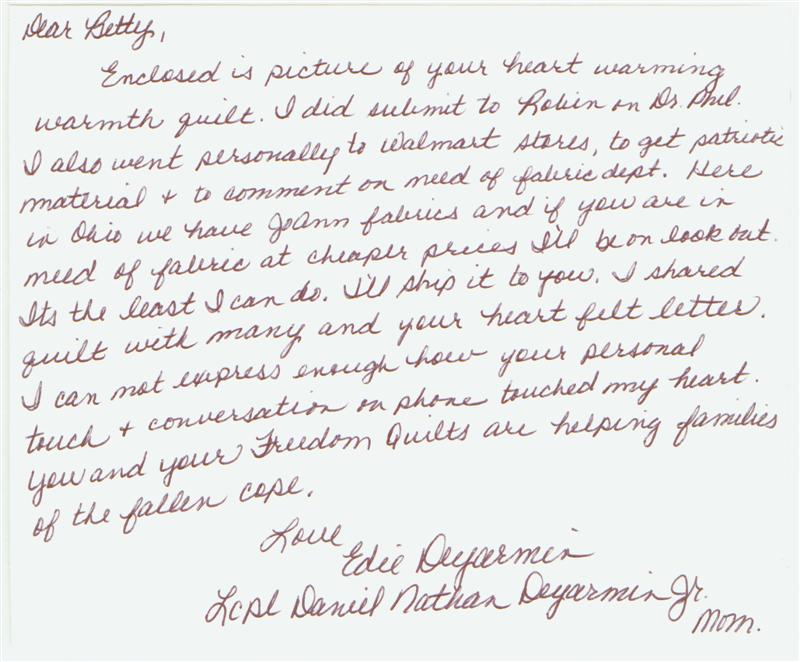 Dear Betty,
Enclosed is picture of your heart warming
warmth quilt. I did submit to Robin on Dr. Phil.
I also went personally to Walmart stores, to get patriotic
material + to comment on need of fabric dept. Here
in Ohio we have JoAnn fabrics and if you are in
need of fabric at cheaper prices I'll be on look out.
Its the least I can do. I'll ship it to you. I shared
quilt with many and your heart felt letter.
I can not express enough how your personal
touch + conversation on phone touched my heart.
You and your Freedom Quilts are helping families
of the fallen cope.
Love
Edie Deyarmin
Lcpl Daniel Nathan Deyarmin Jr.
Mom.